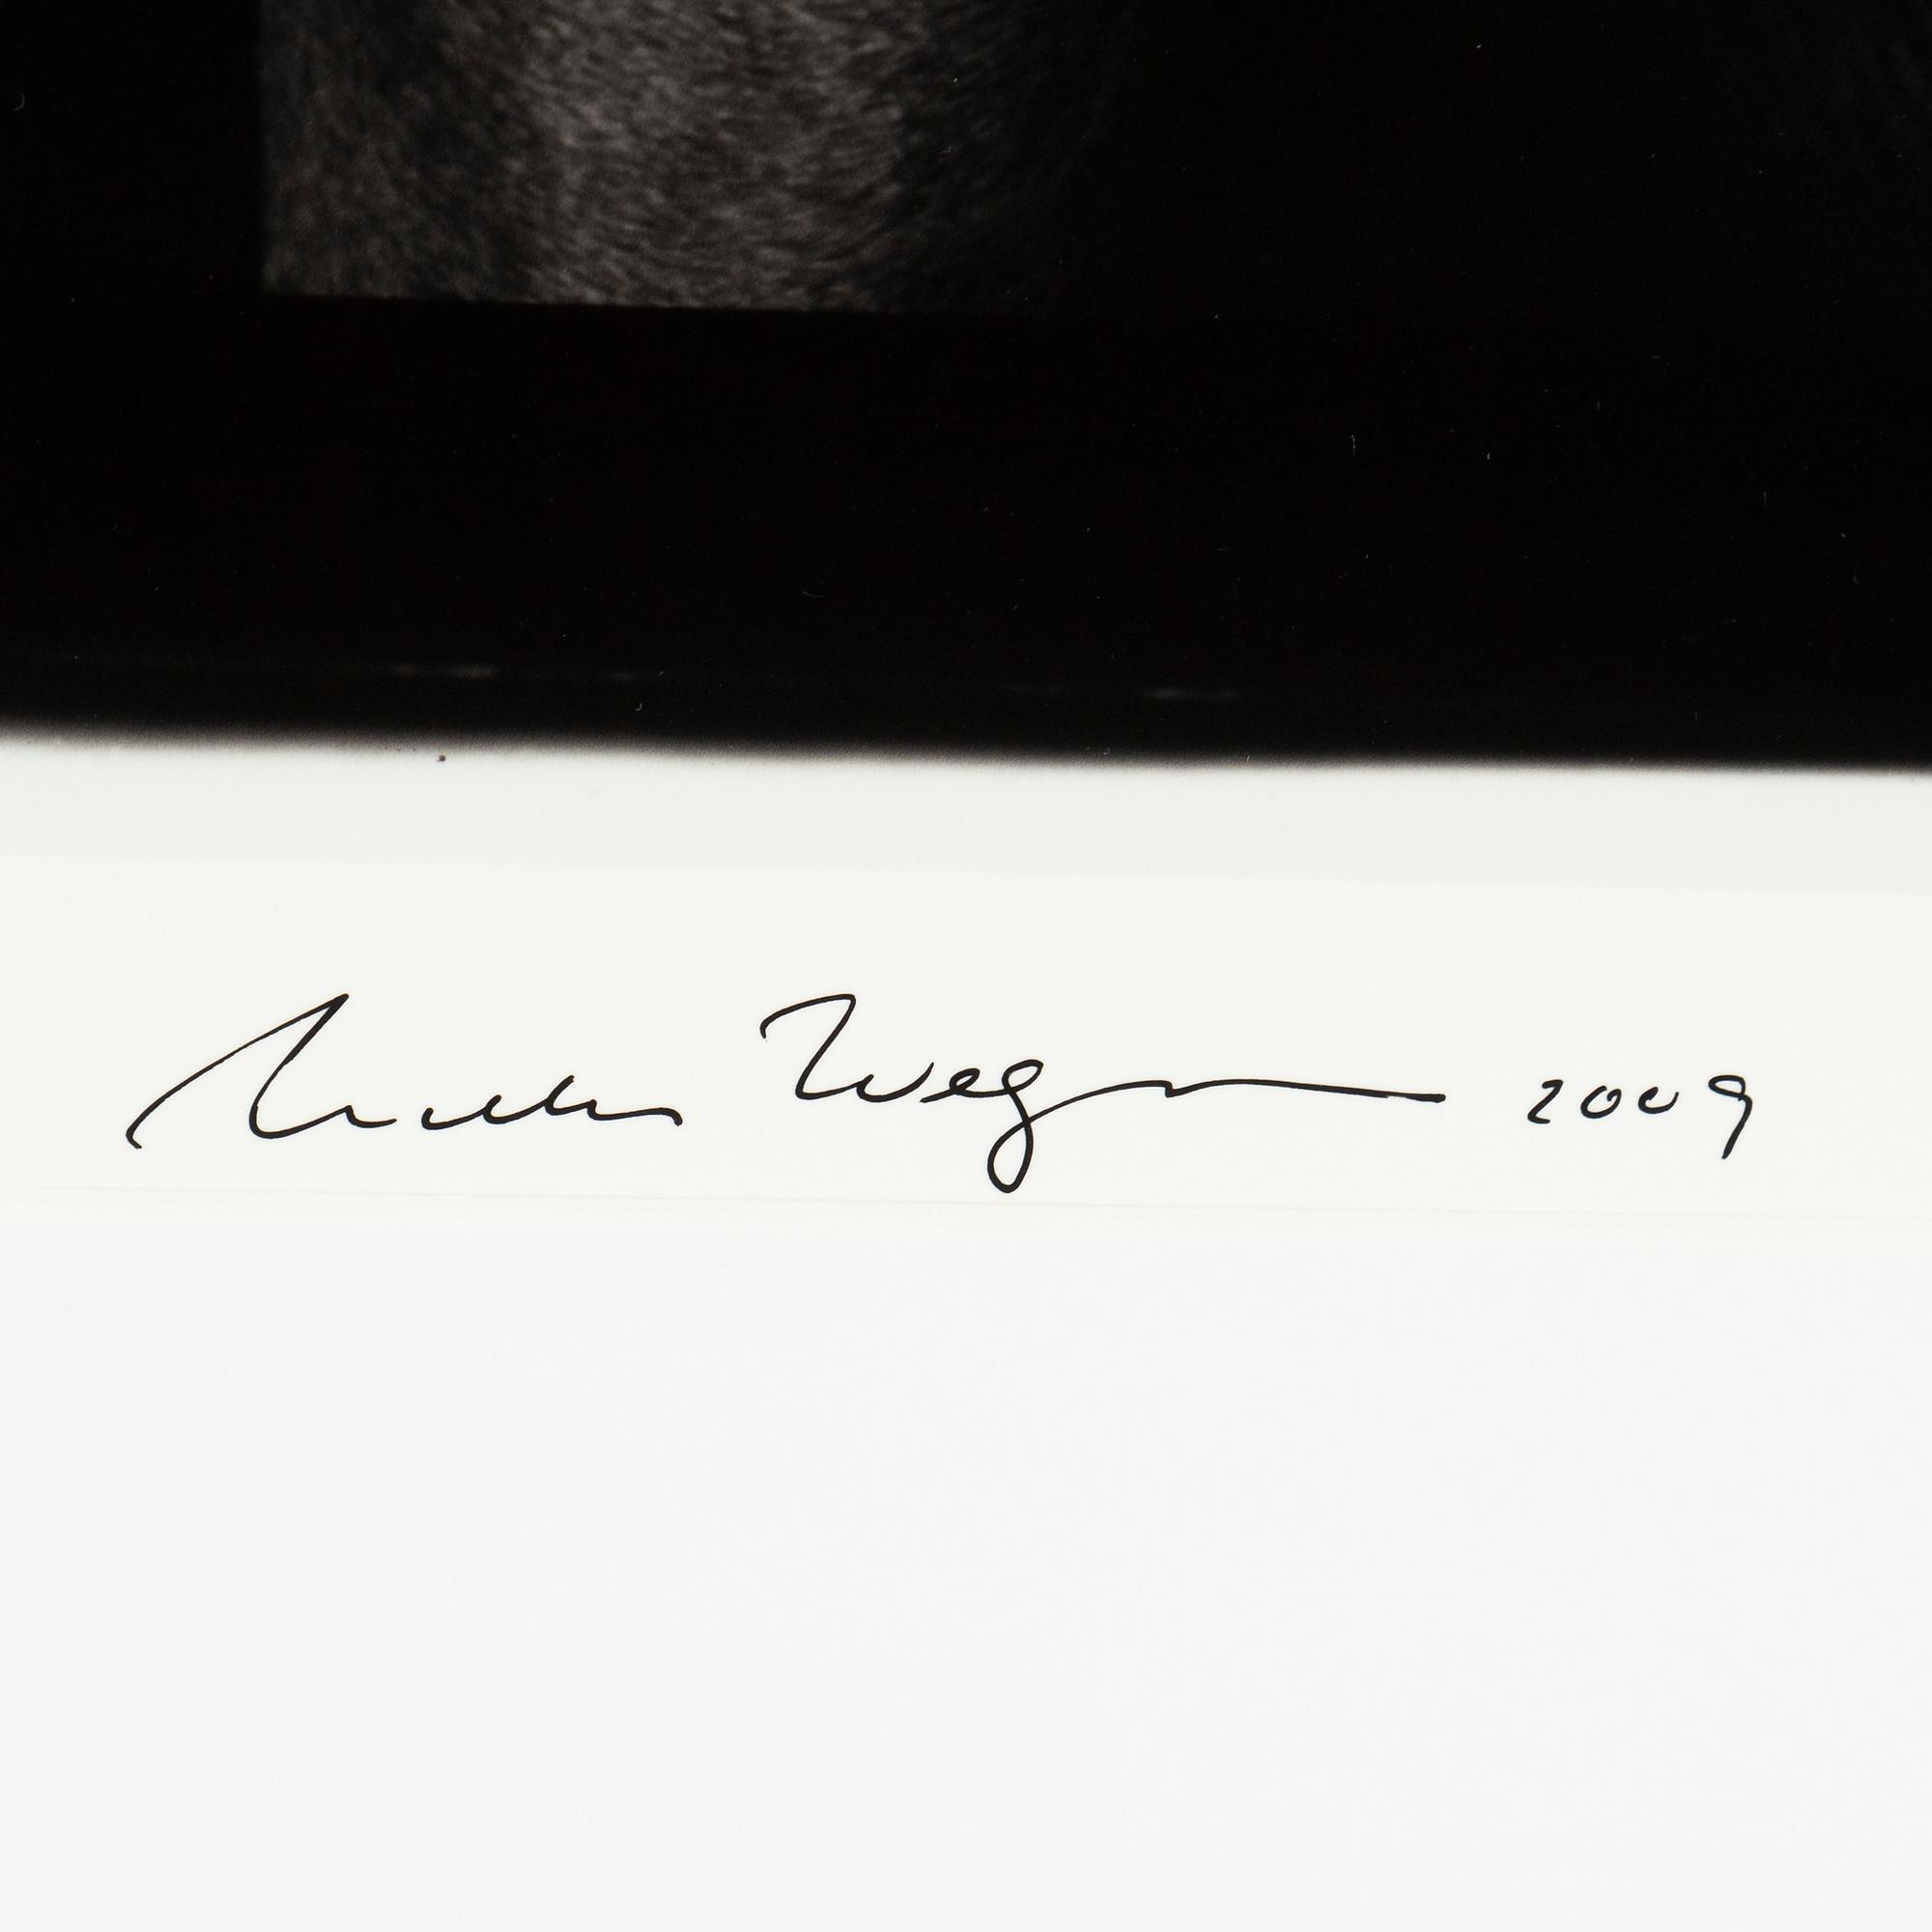 William Wegman 2009